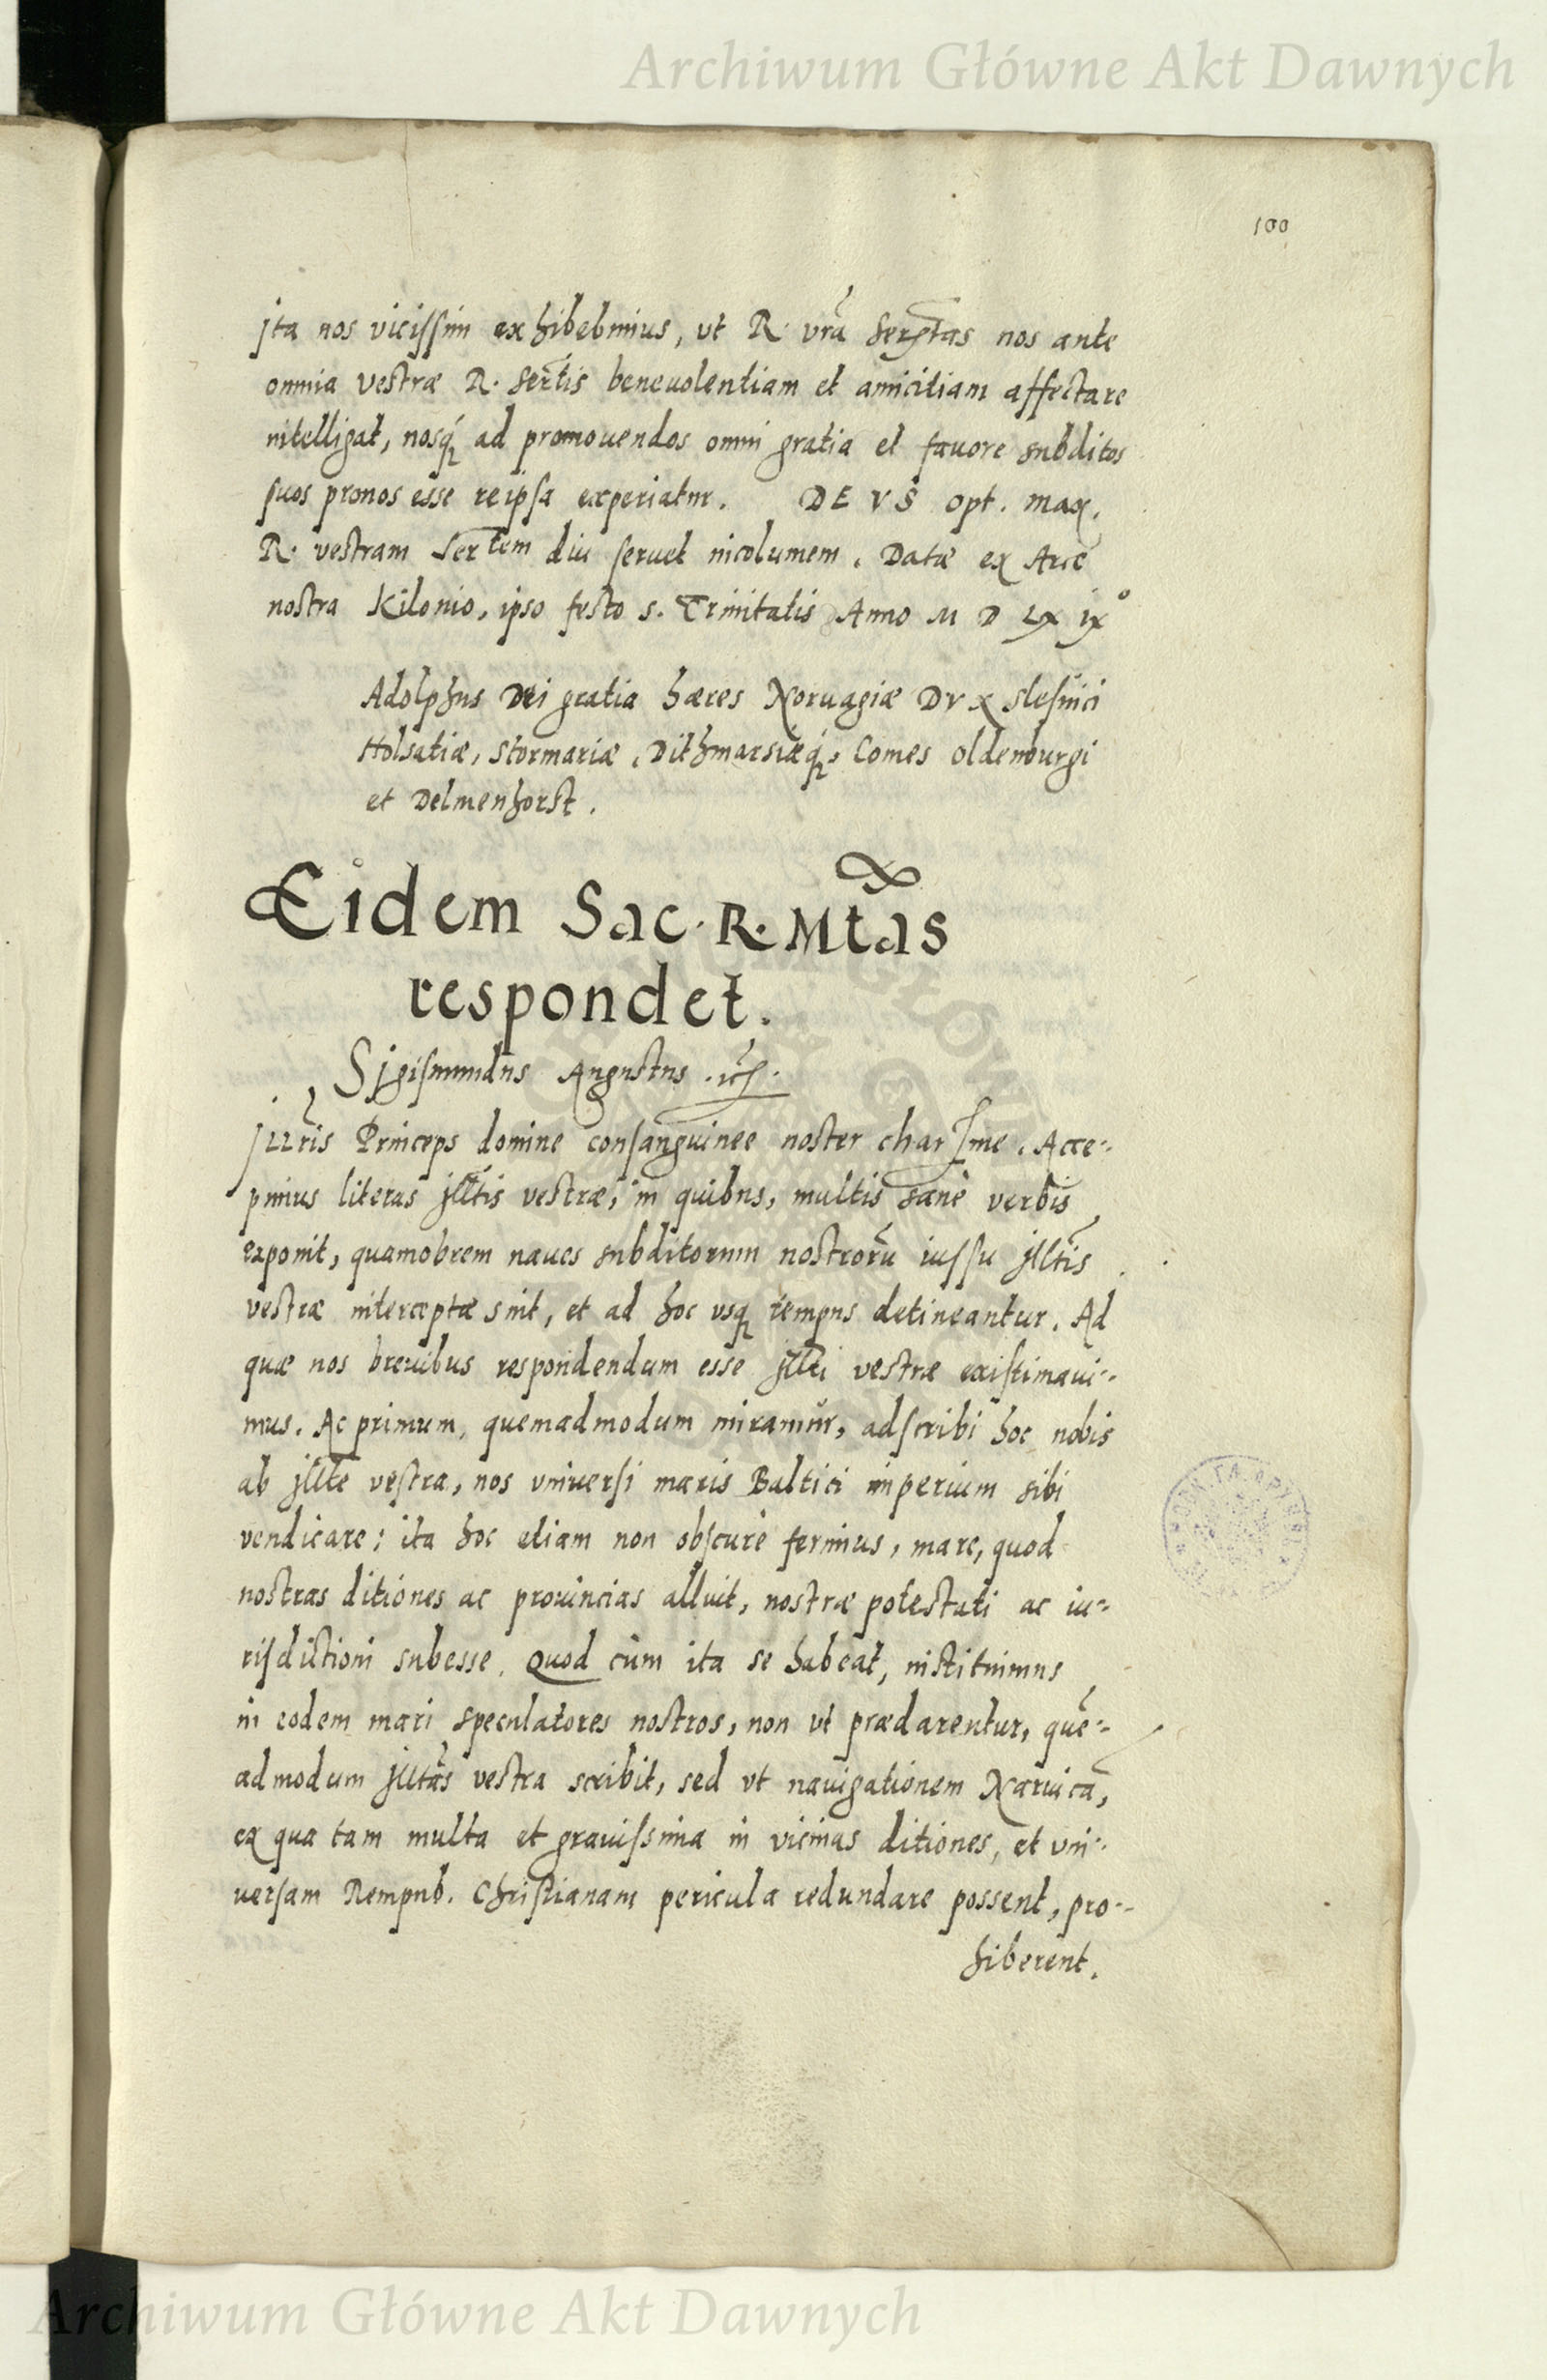 Archiwum Główne Akt Dawnych
100
jta nos vicissim exhibebimus, vt R. vrã Serẽtas nos ante
omnia vestræ R. Sertis beneuolentiam et amicitiam affectare
intelligat, nosq́ ad promouendos omni gratia et fauore subditos
suos pronos esse reipsa experiatur. DEVS opt. max.
R. vestram Sertem diu seruet incolumem. Datæ ex Arce
nostra Kilonio, ipso festo s. Trinitatis Anno M D LX ix°
Adolphus Dei gratia hæres Noruagiæ Dvx Slesuici
Holsatiæ, Stormariæ, Dithmarsiæq́, Comes Oldenburgi
et Delmenhorst.
Eidem Sac. R. Mtas
respondet.
Sigismundus Augustus . etc.
Jllris Princeps domine consanguinee noster charsme. Acce-
pimus literas jlltis vestræ, in quibus, multis sanè verbis
exponit, quamobrem naues subditorum nostrorũ iussu jlltis
vestræ interceptæ sint, et ad hoc vsq tempus detineantur. Ad
quæ nos breuibus respondendum esse jllti vestræ existimaui-
mus. Ac primum, quemadmodum miramur, adscribi hoc nobis
ab jllte vestra, nos vniuersi maris Baltici imperium sibi
vendicare; ita hoc etiam non obscurè ferimus, mare, quod
nostras ditiones ac prouincias alluit, nostræ potestati ac iu-
risdictioni subesse. Quod cùm ita se habeat, instituimus
in eodem mari speculatores nostros, non vt prædarentur, quẽ-
admodum jlltas vestra scribit, sed vt nauigationem Naruicã,
ex qua tam multa et grauissima in vicinas ditiones, et vni-
uersam Rempub. Christianam pericula redundare possent, pro-
hiberent.
Archiwum Główne Akt Dawnych